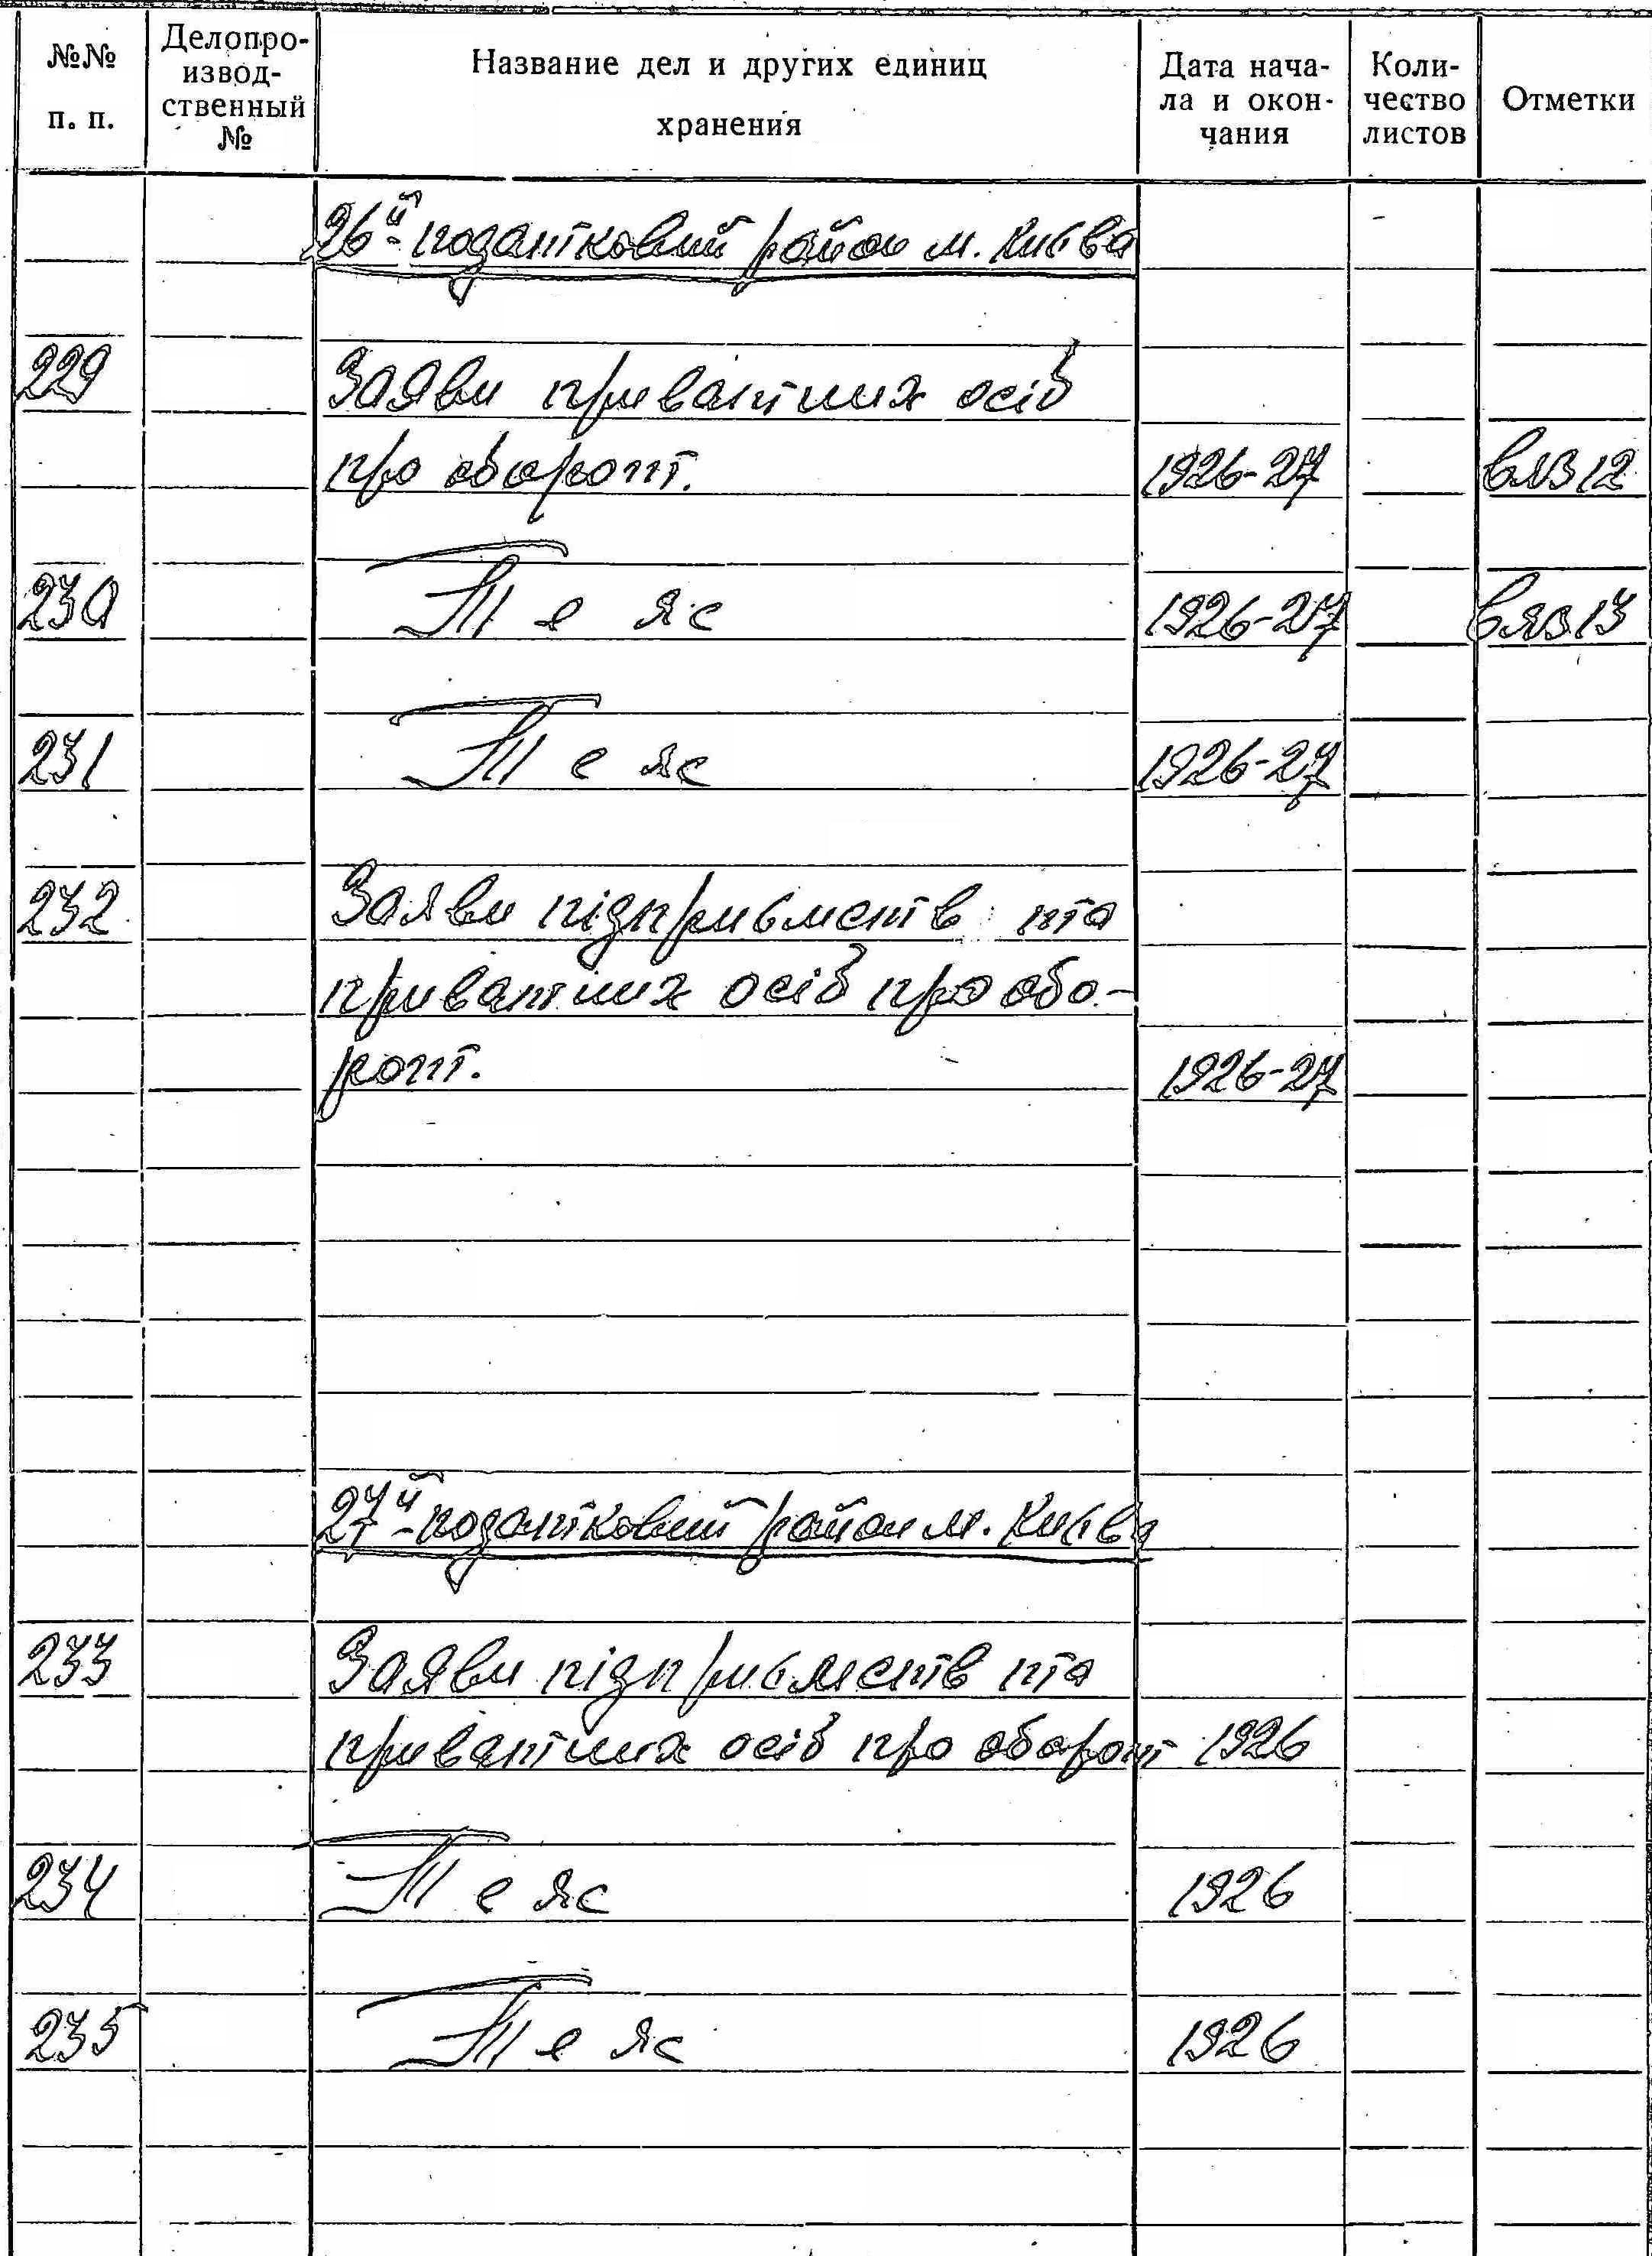 №№ п. п. Делопро-извод-ственный № Название дел и других единиц хранения Дата нача-ла и окон-чания Коли-чество листов Отметки
26й - податковий район м. Києва
229 Заяви приватних осіб
про оборот. 1926-27 вяз 12
230 Те же 1926-27 вяз 13
231 Те же 1926-27
232 Заяви підприємств та
приватних осіб про обо-
рот. 1926-27
27й - податковий район м. Києва
233 Заяви підприємств та
приватних осіб про оборот 1926
234 Те же 1926
235 Те же 1926